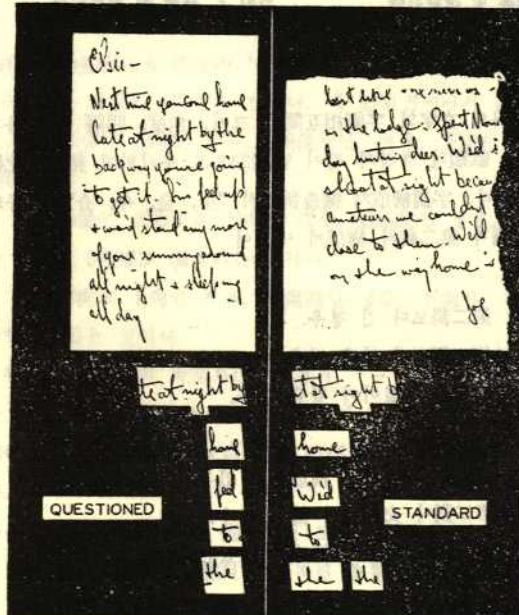 Elsie-
Next time you come home
late at night by the
back way you're going
to get it. I'm fed up
& won't stand any more
of your running around
all night & sleeping
all day
best
in the lodge. Spent Mon
day hunting deer. W'd
shoot at sight becau
amateurs we couldn't
close to them. Will
on the way home is
Joe
te at night by
t at sight b
home
home
fed
W'd
QUESTIONED
STANDARD
to
to
the
the the